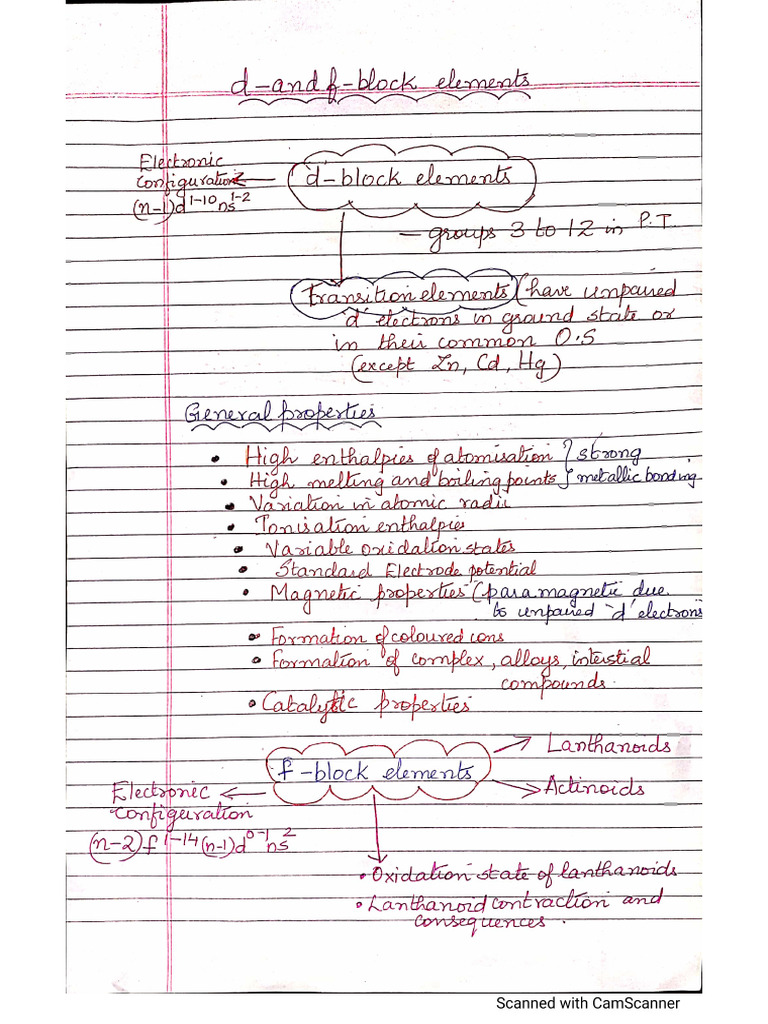 d-and f-block elements
Electronic
configuration
(n-1)d¹⁻¹⁰ns¹⁻²
d-block elements
- groups 3 to 12 in P.T.
Transition elements (have unpaired
d electrons in ground state or
in their common O.S
(except Zn, Cd, Hg)
General properties
• High enthalpies of atomisation } strong
• High melting and boiling points } metallic bonding
• Variation in atomic radii
• Ionisation enthalpies
• Variable oxidation states
• Standard Electrode potential
• Magnetic properties (paramagnetic due
to unpaired 'd' electrons
• Formation of coloured ions
• Formation of complex, alloys, interstial
compounds.
• Catalytic properties
f-block elements
Lanthanoids
Actinoids
Electronic
configuration
(n-2)f¹⁻¹⁴(n-1)d⁰⁻¹ns²
• Oxidation state of lanthanoids
• Lanthanoid contraction and
consequences.
Scanned with CamScanner